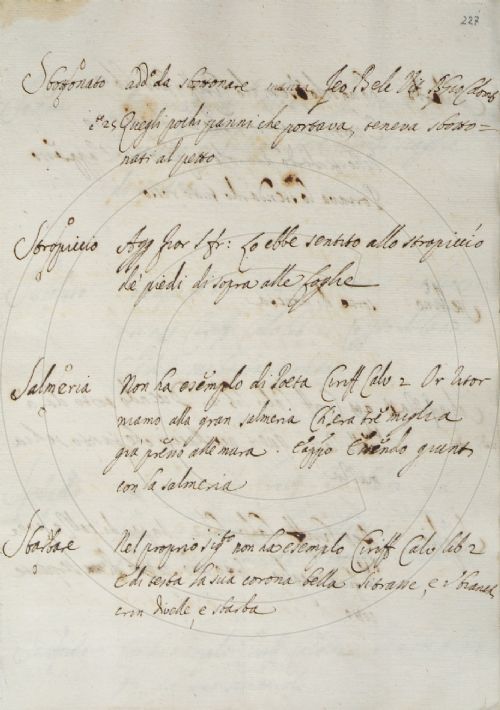 227
Sbottonato add. da sbottonare
25 Quegli pochi panni che portava, teneva sbotto=
nati al petto
Stropiccio Agg Fior S. fr: Lo ebbe sentito allo stropiccio
de' piedi di sopra alle foglie
Salmeria Non ha esempio di Poeta Ciriff Calv 2 Or Ritor
niamo alla gran salmeria Ch'era tre miglia
gia presso alle mura. E appo Essendo giunti
con la salmeria
Sbarbare Nel proprio sig.to non ha esempio Ciriff Calv lib 2
E di testa la sua corona bella Si trasse, e
crin divelle, e sbarba